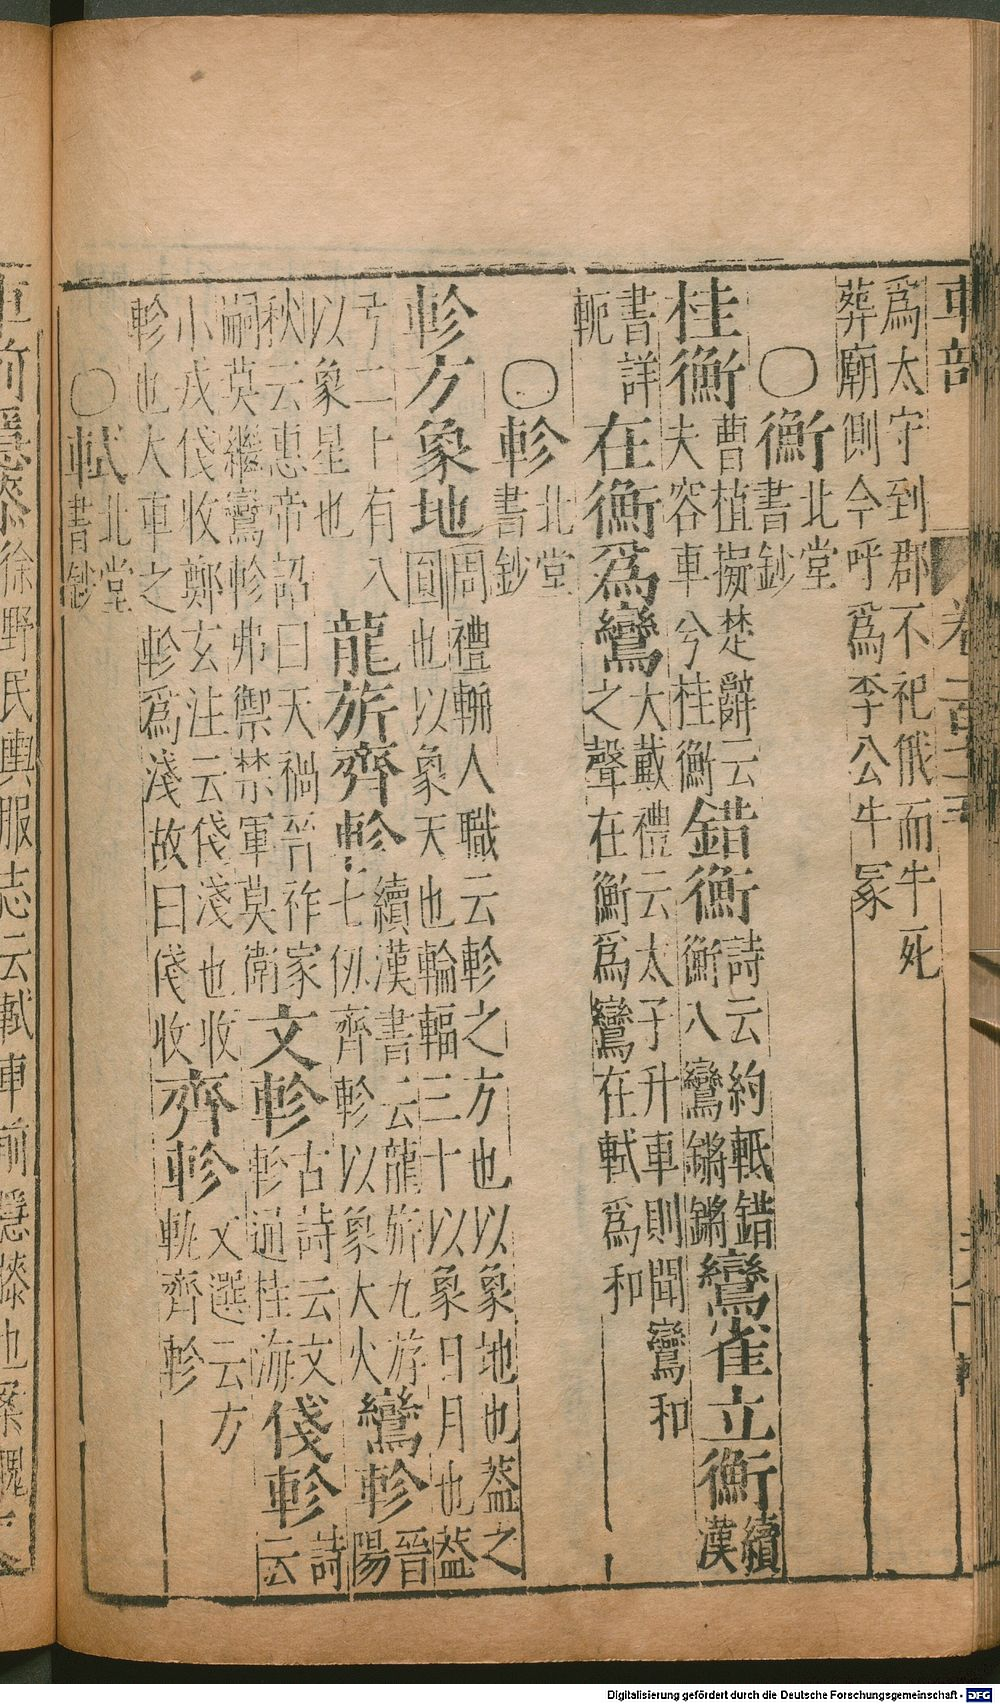 車部
爲太守到郡不祀俄而牛死
葬廟側今呼爲李公牛冢
〇衡北堂書鈔
桂衡曹植擬楚辭云夫容車兮桂衡錯衡詩云約軝錯衡八鸞鏘鏘鸞雀立衡續漢
書詳軛在衡爲鸞大戴禮云太子升車則聞鸞和之聲在衡爲鸞在軾爲和
〇軫北堂書鈔
軫方象地周禮輈人職云軫之方也以象地也葢之圓也以象天也輪輻三十以象日月也葢
弓二十有八以象星也龍旂齊軫續漢書云龍旂九游七仞齊軫以象大火鸞軫晉陽
秋云惠帝詔曰天禍晉祚家嗣莫繼鸞軫弗禦禁軍莫衛文軫古詩云文軫通桂海俴軫詩云
小戎俴收鄭玄注云俴淺也收軫也大車之軫爲淺故曰俴收齊軫文選云方軌齊軫
〇軾北堂書鈔
車前隱膝徐野民輿服志云軾車前隱膝也案
Digitalisierung gefördert durch die Deutsche Forschungsgemeinschaft - DFG